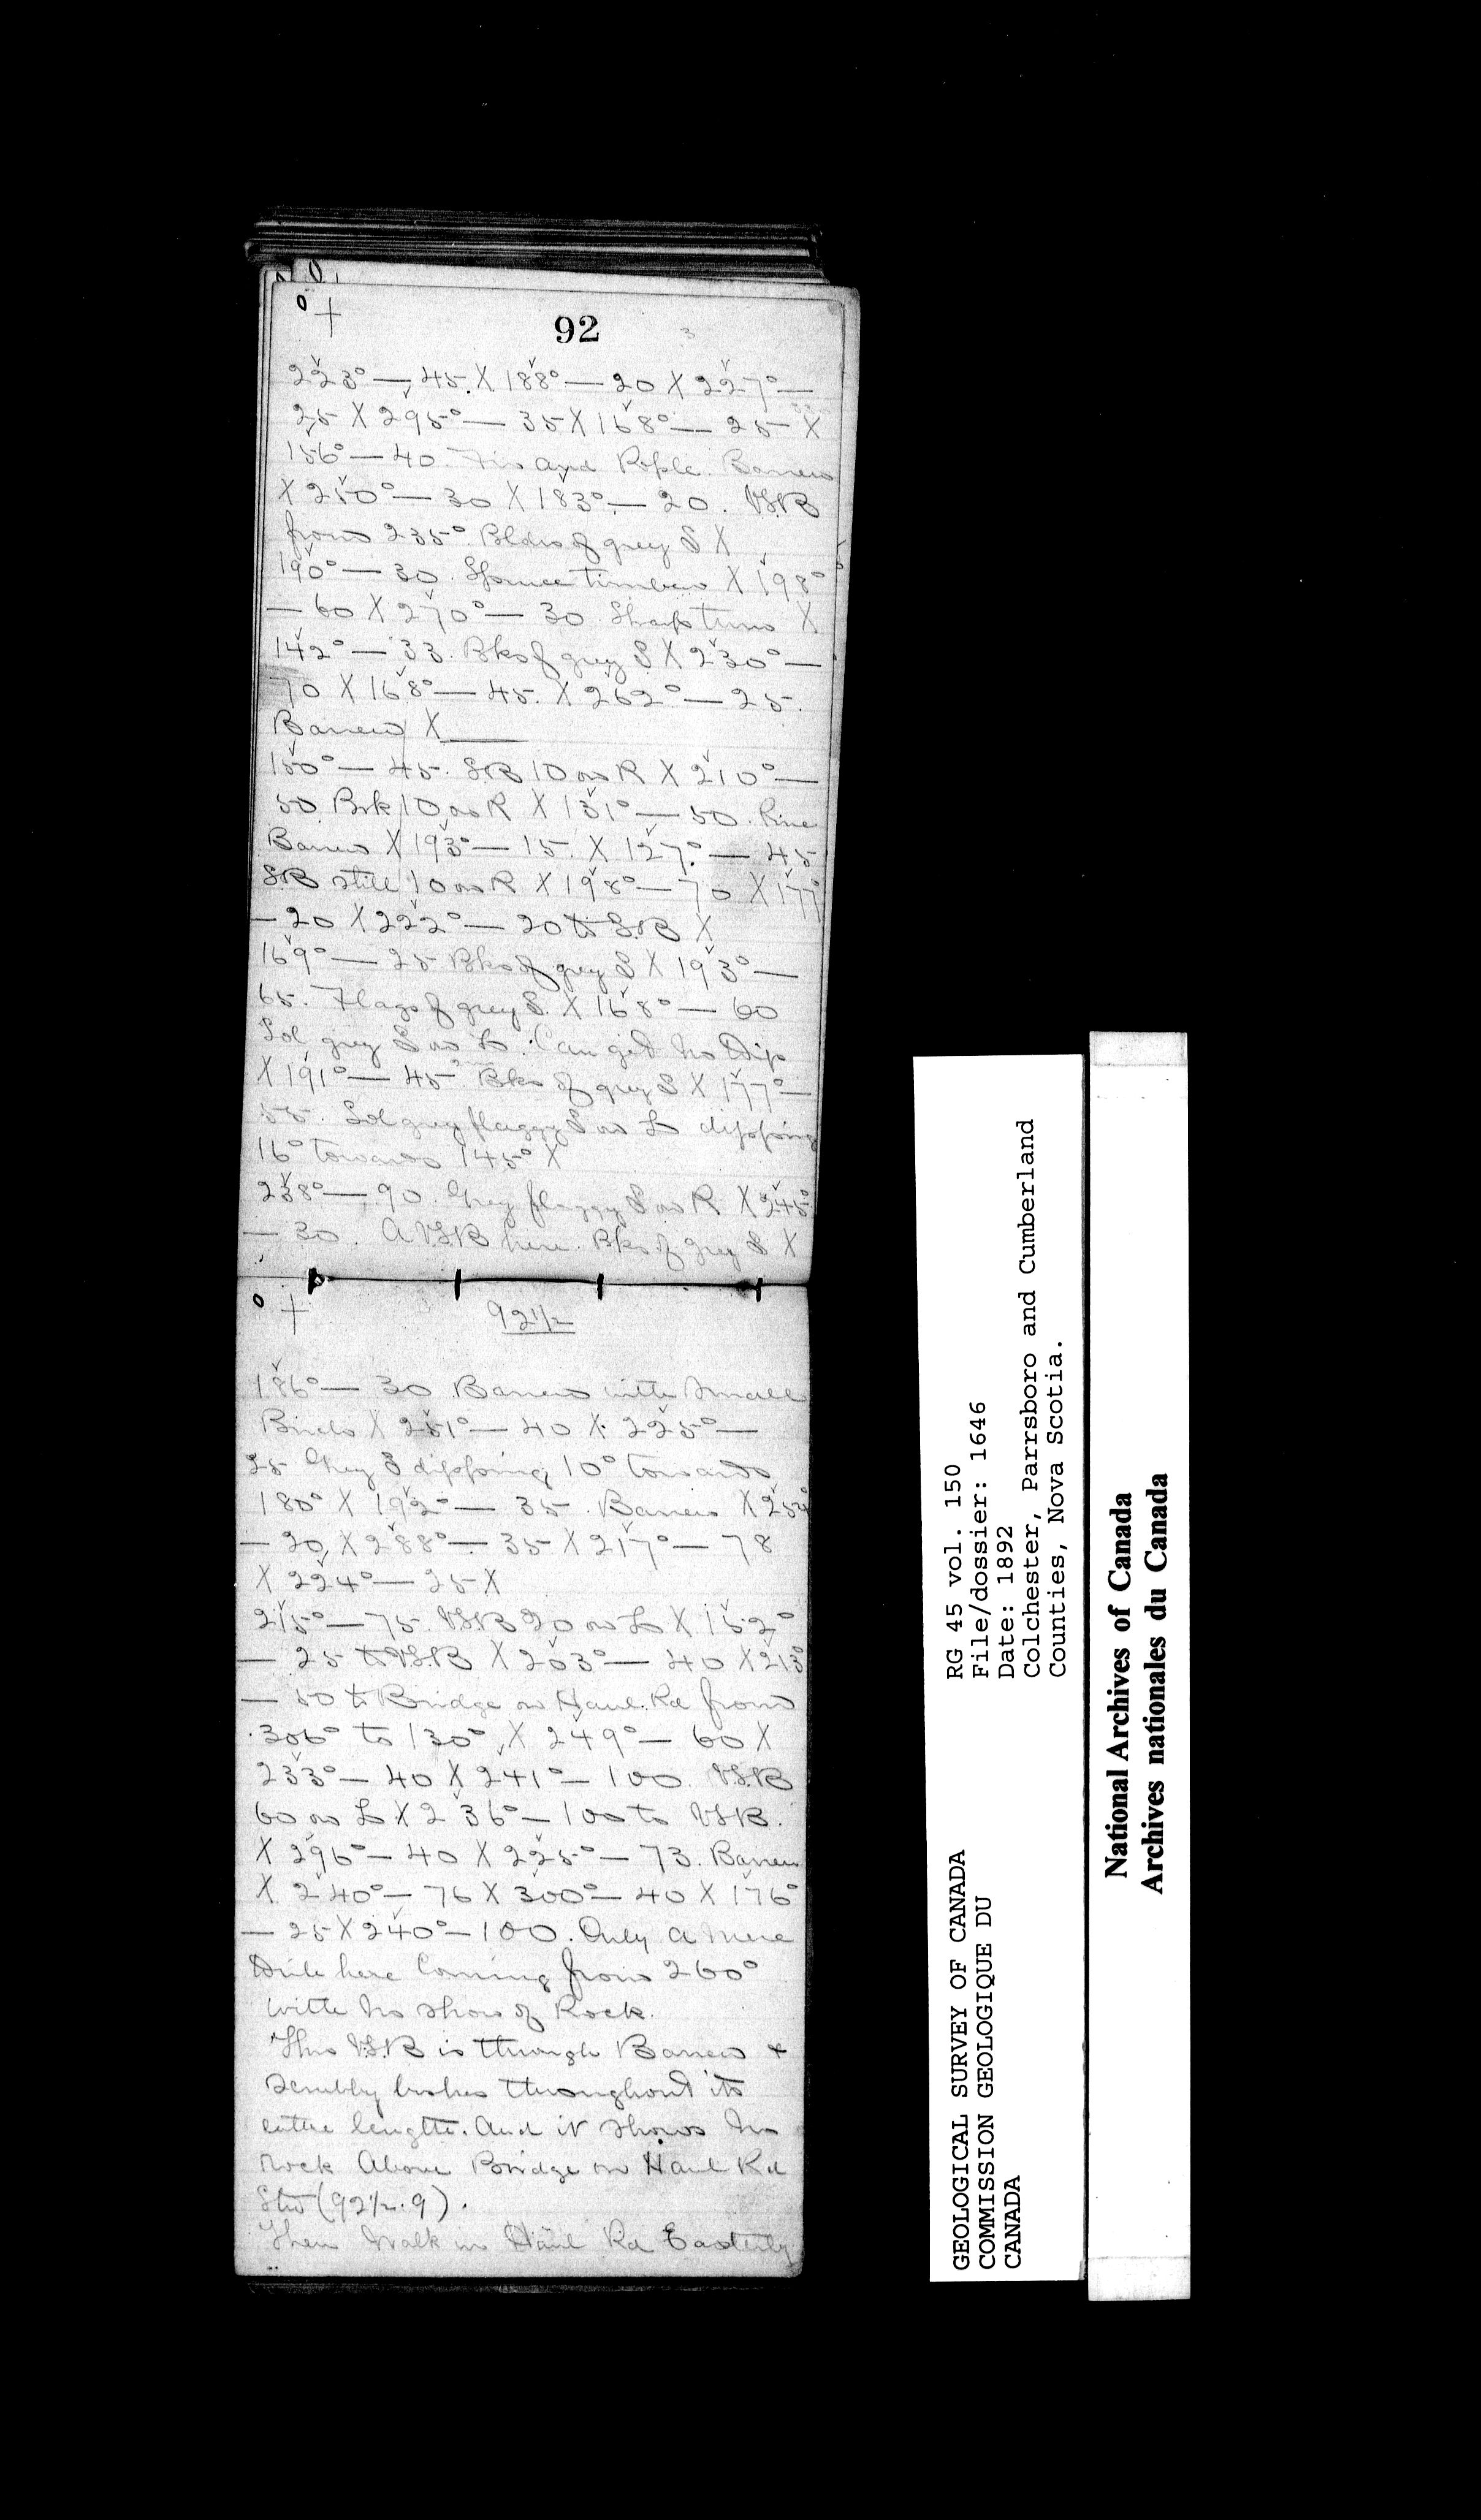 92
223° — 45 X 188° — 20 X 227° —
25 X 295° — 35 X 168° — 25 X
156° — 40. Firs and Barren
X 250° — 30 X 183° — 20. VSB
from 235°. Bldrs of grey S X
190° — 30. Spruce timber X 198°
— 60 X 270° — 30 Sharp turn X
142° — 33. Bks of grey S X 230° —
70 X 168° — 45. X 262° — 25.
Barren X
150° — 45. SB 10 on R X 210° —
50. Brk 10 on R X 131° — 50. Pine
Barren X 193° — 15. X 127° — 45
SB still 10 on R X 198° — 70 X 177°
— 20 X 222° — 20 to SB X
169° — 25 Bks of grey S X 193° —
65. Flags of grey S. X 168° — 60
Sol grey S on L. Can get no Dip
X 191° — 45 Bks of grey S X 177° —
55. Sol grey flaggy S on L dipping
16° towards 145° X
238° — 90. Grey flaggy S on R X 245°
— 30. A VSB here. Bks of grey S X
92 1/2
186° — 30 Barren with small
Birds X 251° — 40 X 225° —
25 Grey S dipping 10° towards
180° X 192° — 35. Barren X
— 20, X 288° — 35 X 217° — 78
X 224° — 25 X
215° — 75 VSB 20 on L X 152°
— 25 to VSB X 203° — 40 X 213°
— 50 to Bridge on Haul. Rd from
306° to 130°, X 249° — 60 X
233° — 40 X 241° — 100 VSB
60 on L X 236° — 100 to VSB.
X 296° — 40 X 225° — 73. Barren
X 240° — 76 X 300° — 40 X 176°
— 25 X 240° — 100. Only a mere
here Coming from 260°
with no show of Rock.
This VSB is through Barren +
scrubby bushes throughout its
entire length. And it shows no
rock Above Bridge on Haul Rd
Stn (92 1/2. 9).
Then Walk on Haul Rd Easterly
GEOLOGICAL SURVEY OF CANADA
COMMISSION GEOLOGIQUE DU
CANADA
RG 45 vol. 150
File/dossier: 1646
Date: 1892
Colchester, Parrsboro and Cumberland
Counties, Nova Scotia.
National Archives of Canada
Archives nationales du Canada